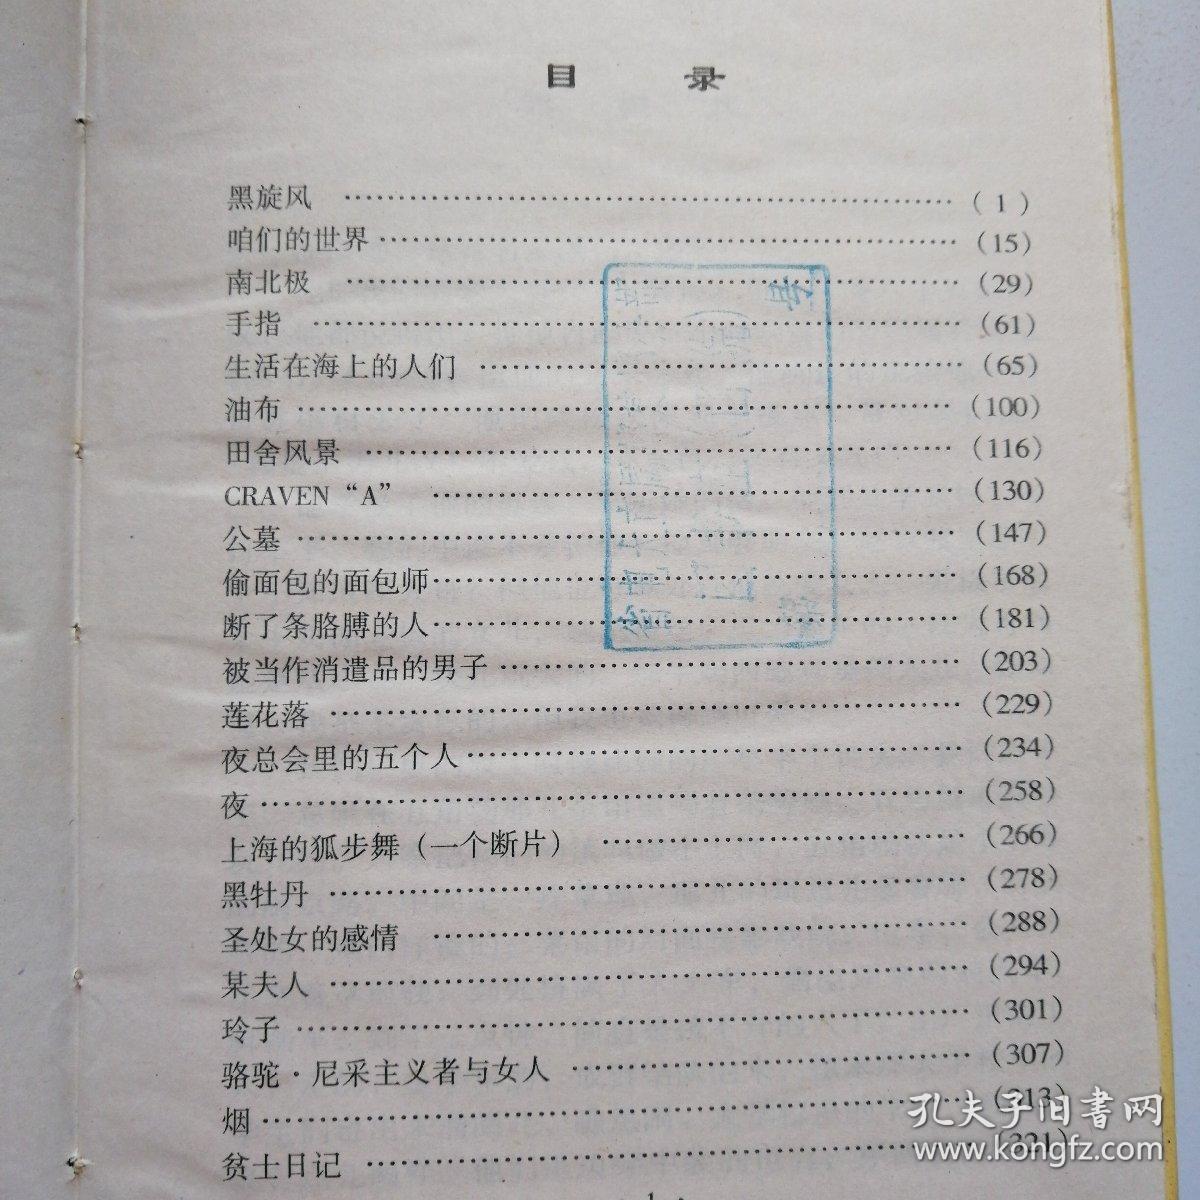 目 录
黑旋风 ………………………………………… （ 1 ）
咱们的世界 ……………………………………… （15）
南北极 ………………………………………… （29）
手指 …………………………………………… （61）
生活在海上的人们 ……………………………… （65）
油布 …………………………………………… （100）
田舍风景 ……………………………………… （116）
CRAVEN “A” …………………………………… （130）
公墓 …………………………………………… （147）
偷面包的面包师 ………………………………… （168）
断了条胳膊的人 ………………………………… （181）
被当作消遣品的男子 …………………………… （203）
莲花落 ………………………………………… （229）
夜总会里的五个人 ……………………………… （234）
夜 ……………………………………………… （258）
上海的狐步舞（一个断片） ……………………… （266）
黑牡丹 ………………………………………… （278）
圣处女的感情 ………………………………… （288）
某夫人 ………………………………………… （294）
玲子 …………………………………………… （301）
骆驼·尼采主义者与女人 ……………………… （307）
烟 ……………………………………………… （313）
贫士日记 ……………………………………… （321）
· 1 ·
孔夫子旧書网
www.kongfz.com